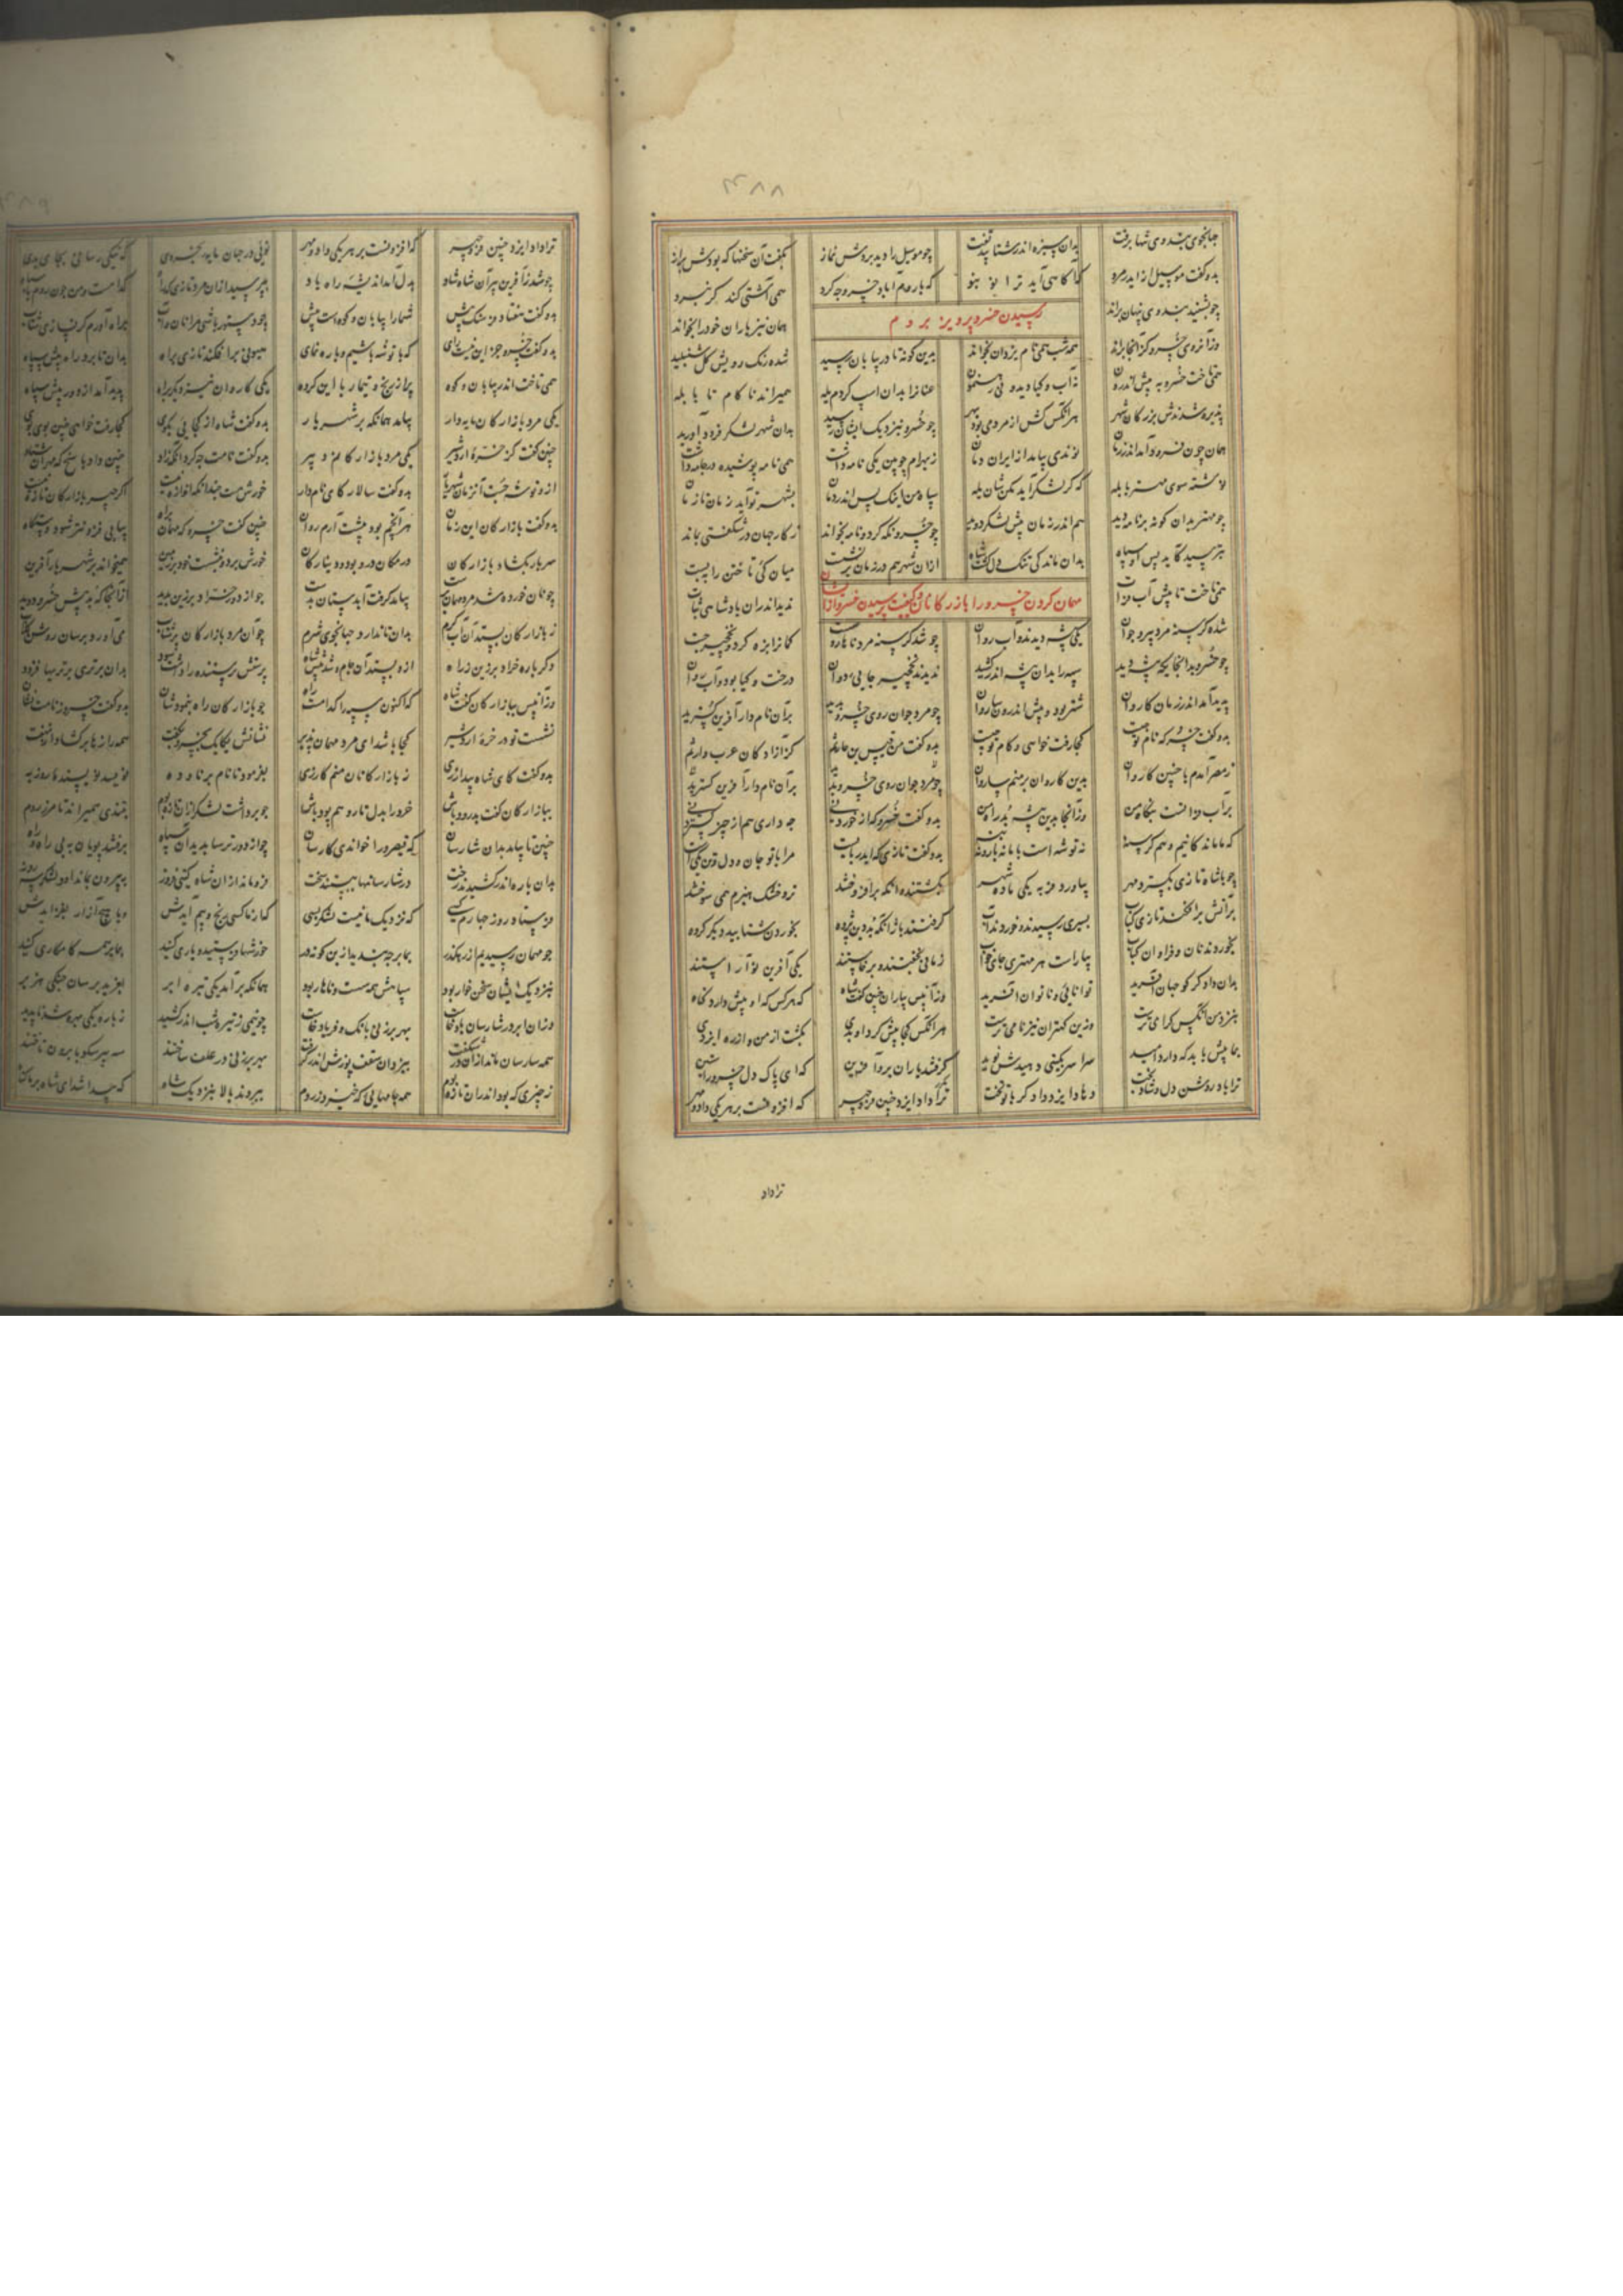 جهانجوی بندوی تنها برفت بدان سبزه اندر شتابید تفت چو موسیل را دید بردش نماز بگفت آن سخنها که بودش براز
بدو گفت موسیل از ایدر مرو که آگاهی آید ترا نو بنو که با روم آباد خسرو چه کرد همی آشتی کند گر نبرد
چو بشنید بندوی پنهان براند همان نیز یاران خود را بخواند
رسیدن خسرو پرویز بروم
وزان روی خسرو کز انجا براند همه شب همی نام یزدان بخواند بدین گونه تا در بیابان رسید شده رنگ رویش گل شنبلید
همی تاخت خسرو به پیش اندرون نه آب و گیا دید و نی رهنمون عنانرا بدان اسپ کردم یله همیراند ناکام تا بابله
پذیره شدندش بزرگان شهر هرانکس کش از مردمی بود بهر چو خسرو بنزدیک ایشان رسید بدان شهر لشکر فرود آورید
همان چون فرود آمد اندر زمان نوندی بیامد از ایران دمان ز بهرام چوبین یکی نامه داشت همی نامه پوشیده در جامه داشت
نوشته سوی مهتر بابله که گر لشکر آید مکن شان یله سپاه من اینک پس اندر دمان بشهر تو آید زمان تا زمان
چو مهتر بدان گونه بر نامه دید هم اندر زمان پیش لشکر دوید چو خسرو نگه کرد و نامه بخواند ز کار جهان در شگفتی بماند
بترسید کاید پس او سپاه بدان ماندگی تنگ دل گشت شاه ازان شهر هم در زمان برنشست میان کئی تاختن را ببست
همی تاخت تا پیش آب فرات ندید اندران پادشاهی ثبات
مهمان کردن خسرو را بازرگانان و کیفیت پرسیدن خسرو ازایشان
شده گرسنه مرد پیر و جوان یکی بیشه دیدند و آب روان چو شد گرسنه مرد کمانرا بزه کرد و نخچیر جست
چو خسرو بدانجایگه بیشه دید سپه را بدان بیشه اندر کشید ندیدند نخچیر جایی دوان درخت و گیا بود و آب روان
پدید آمد اندر زمان کاروان شتر بود و پیش اندرون ساروان چو مرد جوان روی خسرو بدید بران نام دار آفرین گسترید
بدو گفت خسرو که نام تو چیست کجا رفت خواهی و کام تو چیست بدو گفت من قیس بن حارثم کز آزادگان عرب وارثم
ز مصر آمدم با چنین کاروان بدین کاروان بر منم ساروان چو مرد جوان روی خسرو بدید بران نام دار آفرین گسترید
بر آب فراتست بنگاه من وز آنجا بدین بیشه بد راه من بدو گفت خسرو که از خوردنی چه داری هم از چیز گستردنی
که ما ماندگانیم و هم گرسنه نه توشه است با ما نه بار و بنه بدو گفت تازی که ایدر بایست مرا با تو جان و دل و تن یکیست
چو با شاه تازی بگسترد مهر بیاورد فربه یکی ماده بکشتند و آنگه برافروختند ترو خشک هیزم همی سوختند
بر آتش برافکند تازی کباب بسیری رسیدند و خوردند آب گرفتند باژ آنکه بد دین پژوه بخوردن شتابید دیگر گروه
بخوردند نان و فراوان کباب بیاراست هر مهتری جای خواب زمانی بخفتند و برخاستند یکی آفرین نو آراستند
بدان دادگر کو جهان آفرید توانائی و ناتوان آفرید وزآنپس بیاران چنین گفت شاه که هر کس که او پیش دارد گناه
بنزد من آنکس گرامی ترست وزین کهتران نیز نامی ترست هرانکس کجا پیش کرد او بدی بگشت از من و از ره ایزدی
بما پیش باید که دارد امید سراسر بنیکی دهیدش نوید گرفتند یاران برو آفرین که ای پاک دل خسرو راستین
ترا باد روشن دل و شاد بخت ترا داد ایزد چنین فر و چهر که افزونیست بر هر یکی داد و مهر
ترا داد
ترا داد ایزد چنین فر و چهر که افزونیست بر هر یکی داد و مهر توئی در جهان مایه که نیکی رسانی بجای بدی
بدل آمد اندیشه راه یاد بپرسید ازان مرد تازی که راه کدامست و من چون روم با سپاه
بدو گفت هفتاد فرسنگ بیش شمارا بیابان و کوهست پیش چو دستور باشی مرا نان و آب براه آورم گر نسازی شتاب
بدو گفت خسرو جز این نیست رای که با توشه باشیم و با ره نمای هیونی برافکند تازی براه بدان تا برد راه پیش سپاه
همی تاخت اندر بیابان و کوه پر از رنج و تیمار با این گروه یکی کاروان نیز دیگر براه پدید آمد از دور پیش سپاه
یکی مرد بازارگان مایه دار بیامد همانگه بر شهریار بدو گفت شاه از کجایی بگوی کجا رفت خواهی چنین پوی پوی
چنین گفت کز خره اردشیر یکی مرد بازارگانم دبیر بدو گفت نامت چه کرد آنکه زاد چنین داد پاسخ که مهران ستاد
ازو توشه جست آنزمان شهریار بدو گفت سالار کای نام دار خورش هست چندانکه اندازه نیست اگر چهر بازارگان تازه نیست
بدو گفت بازارگان این زمان چنین گفت خسرو که مهمان براه بیابی فزونتر شود دستگاه
سر بار بگشاد بازارگان درمگان درو بود و دینارگان خورش برد و بنشست خود بر زمین همیخواند بر شهریار آفرین
چو نان خورده شد مرد مهمان پرست بیامد گرفت آبدستان بدست چو از دور خراد برزین بدید از آنجا که بد پیش خسرو دوید
ز بازارگان بستد آن آب گرم بدان تا ندارد جهانجوی شرم چو آن مرد بازارگان پر شتاب می آورد برسان روشن گلاب
دگر باره خراد برزین ز راه ازو بستد آن جام و شد پیش شاه پرستش پرستنده را داشت سود بدان برتری برتریها فزود
وزآنپس ببازارگان گفت شاه که اکنون سپه را کدامست راه چو بازارگان راه بنمودشان بدو گفت خسرو ز نامت نشان
نشست تو در خره اردشیر کجا باشد ای مرد مهمان پذیر نشانش یکایک بخسرو بگفت همه رازها برگشاد از نهفت
بدو گفت کای شاه بیدار ز بازارگانان منم کارزی بفرمود تا نام برنا و ده نویسد نویسنده روزبه
ببازارگان گفت بدرود باش خرد را بدل تار و هم پود باش چو برداشت لشکر ازان تازه بوم بتندی همیراند تا مرز روم
چنین تا بیامد بدان شارسان که قیصر ورا خواندی کارسان چو از دور ترسا بدید آن سپاه برفتند پویان به بی راه و راه
بدان باره اندر کشیدند رخت در شارسانها ببستند سخت فرو مانده زان شاه گیتی فروز بیرون بماند او و لشکر سه روز
فرستاد روز چهارم کسی که نزدیک ما نیست لشکر بسی خورشها فرستید و یاری کنید چه بر ما همی کامگاری کنید
بنزدیک ایشان سخن خوار بود سپاهش همه سست و ناهار بود همانگه برآمد یکی تیره ابر بغرید برسان جنگی هزبر
وزان ابر در شارسان باد خاست بهر برزنی بانگ و فریاد خاست چو نیمی ز تیره شب اندر کشید ز باره یکی بهره شد ناپدید
همه شارسان ماند ازان در شگفت بیزدان سقف پوزش اندر گرفت بهر برزنی در علف ساختند سه پیر سکوبا برون تاختند
ز چیزی که بود اندران تازه بوم همه جامهایی که خیزد ز روم ببردند بالا بنزدیک شاه که پیدا شد ای شاه بر ما گناه